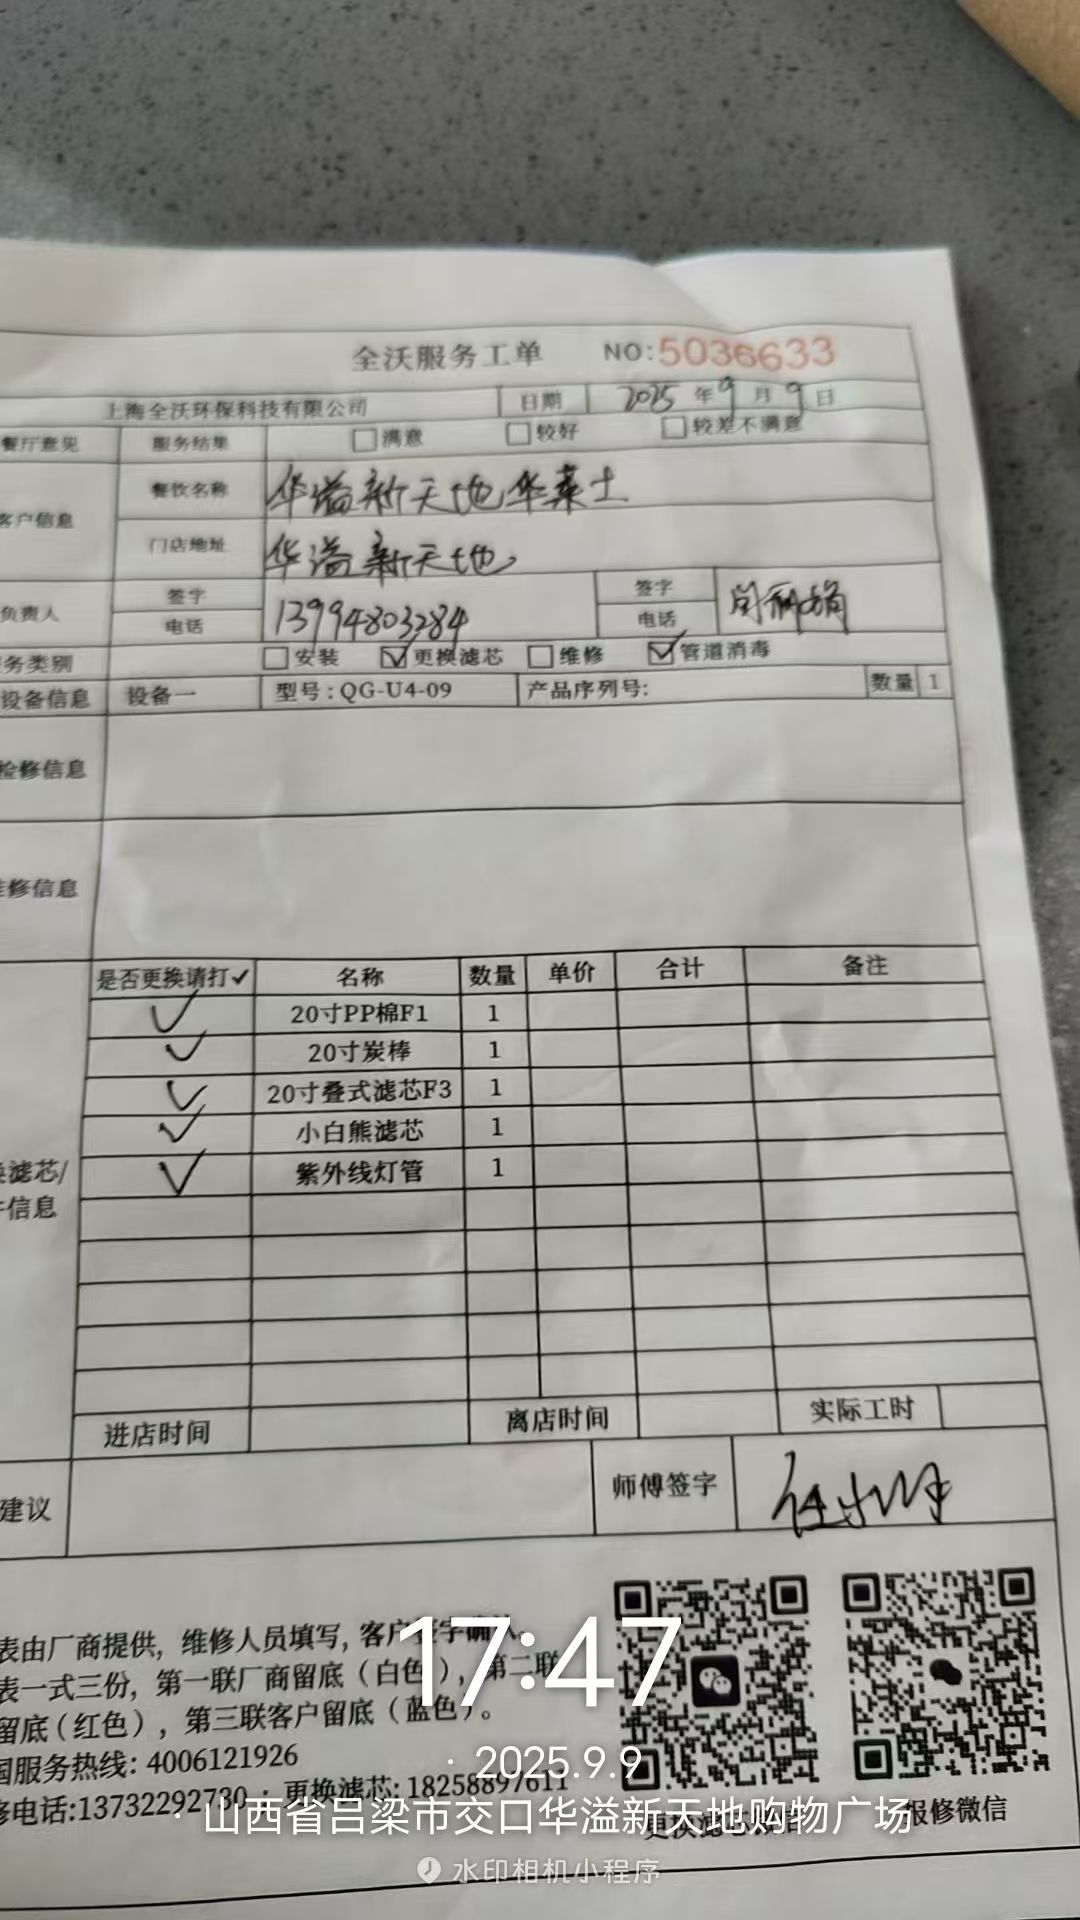 全沃服务工单 NO:5036633
上海全沃环保科技有限公司 日期 2025年9月9日
餐厅意见 服务结果 满意 较好 较差不满意
客户信息 餐饮名称 华溢新天地华莱士
门店地址 华溢新天地
负责人 签字 签字
电话 13994803284 电话
务类别 安装 ✓更换滤芯 维修 ✓管道消毒
设备信息 设备一 型号:QG-U4-09 产品序列号: 数量 1
检修信息
修信息
是否更换请打✓ 名称 数量 单价 合计 备注
✓ 20寸PP棉F1 1
✓ 20寸炭棒 1
✓ 20寸叠式滤芯F3 1
✓ 小白熊滤芯 1
✓ 紫外线灯管 1
滤芯/
信息
进店时间 离店时间 实际工时
建议 师傅签字
表由厂商提供，维修人员填写，客户签字确认。
表一式三份，第一联厂商留底（白色），第二联
留底（红色），第三联客户留底（蓝色）。
国服务热线：4006121926
修电话:13732292730 更换滤芯:18258897611
更换滤芯微信 报修微信
17:47
· 2025.9.9
· 山西省吕梁市交口华溢新天地购物广场
水印相机小程序